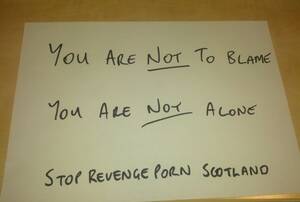 YOU ARE NOT TO BLAME
YOU ARE NOT ALONE
STOP REVENGE PORN SCOTLAND